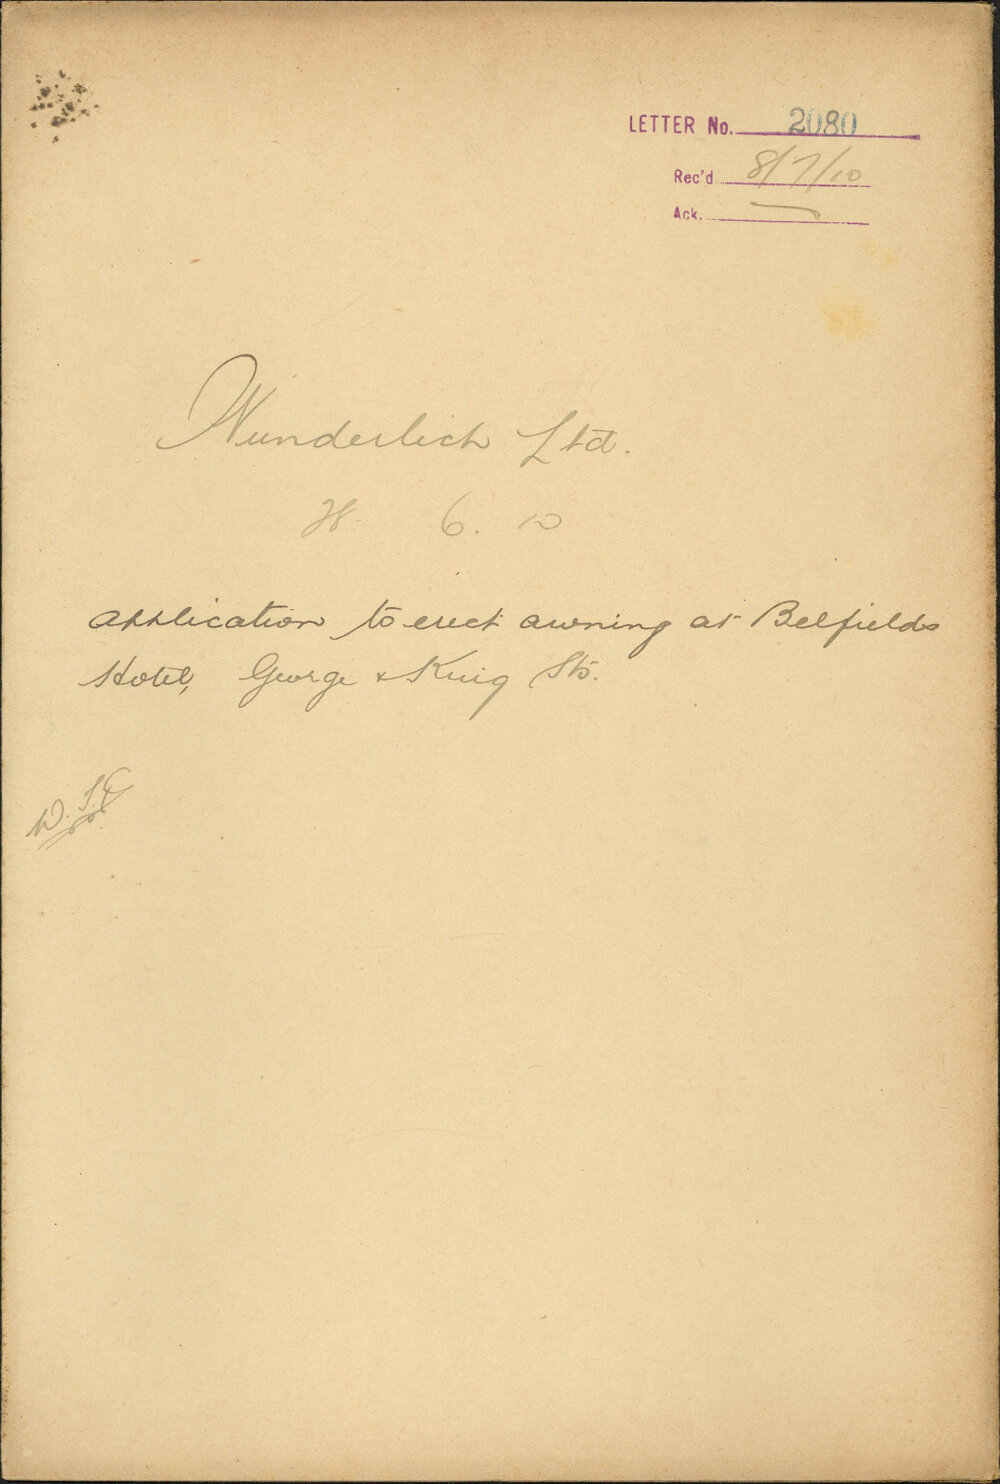 LETTER No. 2080
Rec'd 8/7/10
Ack.
Wunderlich Ltd.
6. 10
application to erect awning at Belfields
Hotel, George & King Sts.